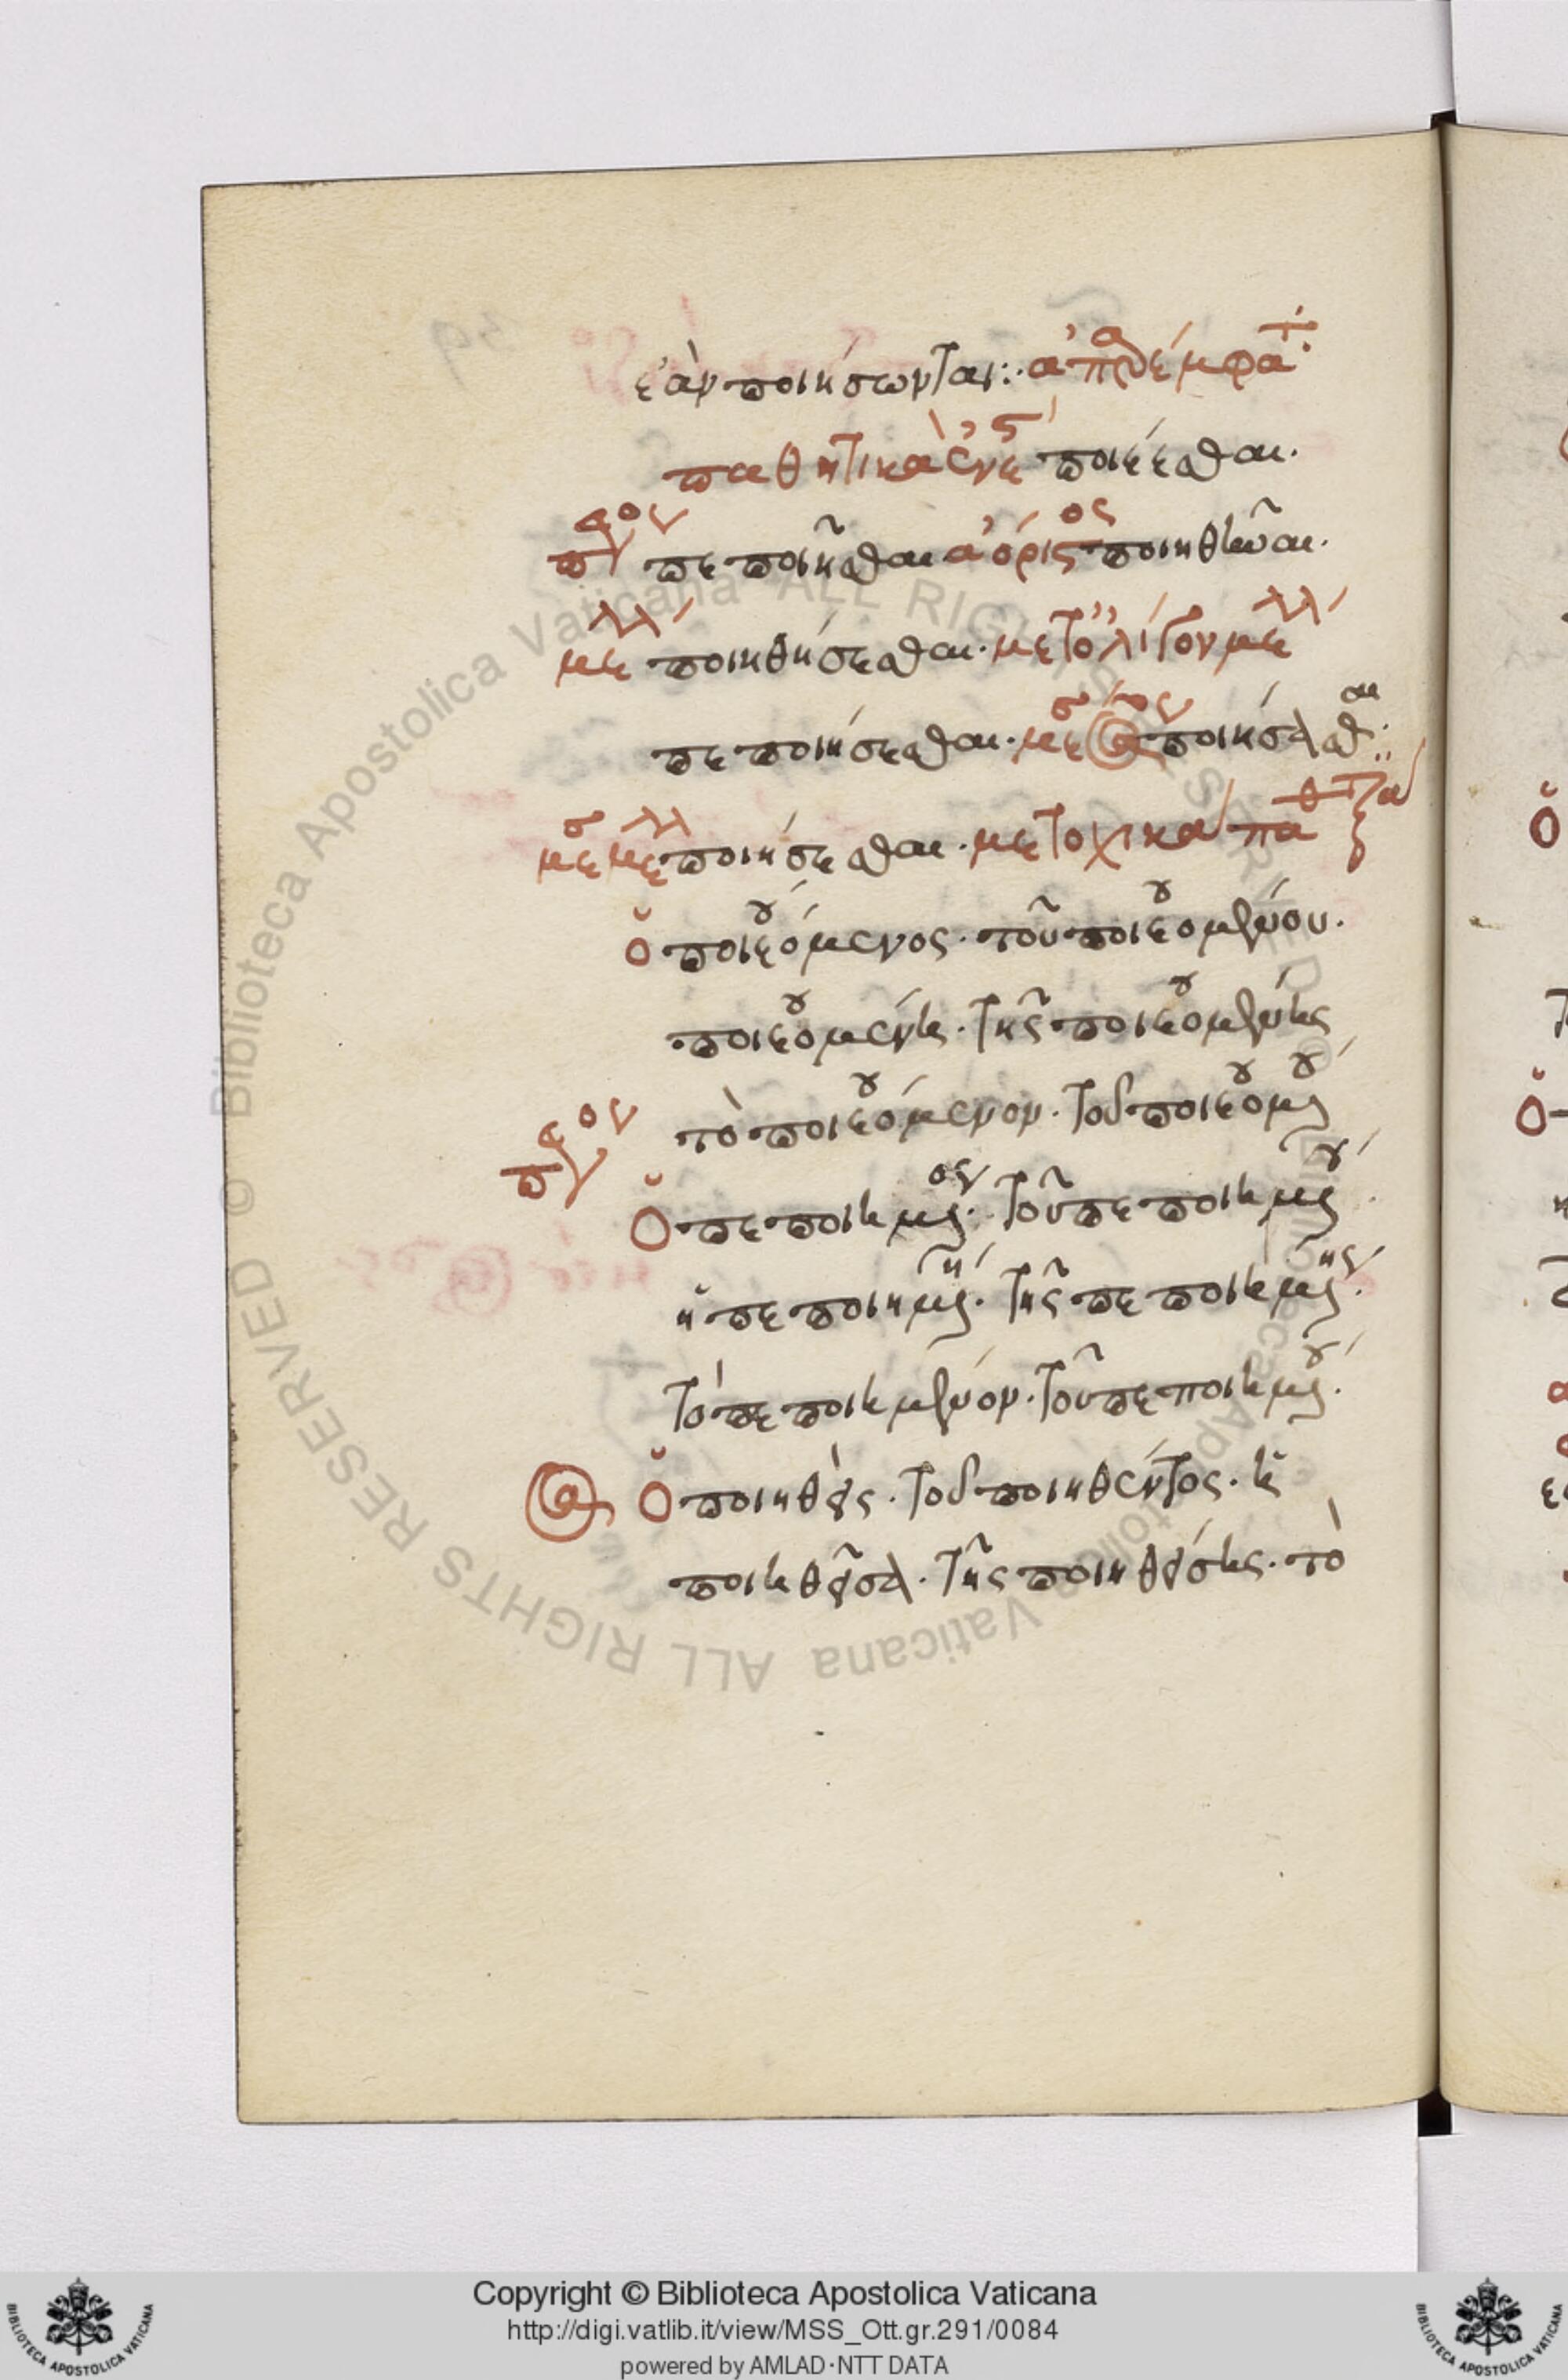 ἐὰν ποιήσωνται: ἀπαρέμφατα
παθητικὰ ἐνεστ ποιέεσθαι.
πεποιῆσθαι ἀόριστος ποιηθῆναι.
μελλ ποιηθήσεσθαι. μετ' ὀλίγον μελλ
πεποιήσεσθαι. μεσ ποιήσασθαι:
μεσ μελλ ποιήσεσθαι. μετοχικὰ παθ
ὁ ποιεόμενος. τοῦ ποιεομένου.
ποιεομένη. τῆς ποιεομένης
τὸ ποιεόμενον. τοῦ ποιεομένου
ὁ πεποιημένος. τοῦ πεποιημένου
ἡ πεποιημένη. τῆς πεποιημένης.
τὸ πεποιημένον. τοῦ πεποιημένου.
ὁ ποιηθείς. τοῦ ποιηθέντος. ἡ
ποιηθεῖσα. τῆς ποιηθείσης. τὸ
Biblioteca Apostolica Vaticana ALL RIGHTS RESERVED ©
Copyright © Biblioteca Apostolica Vaticana
http://digi.vatlib.it/view/MSS_Ott.gr.291/0084
powered by AMLAD·NTT DATA